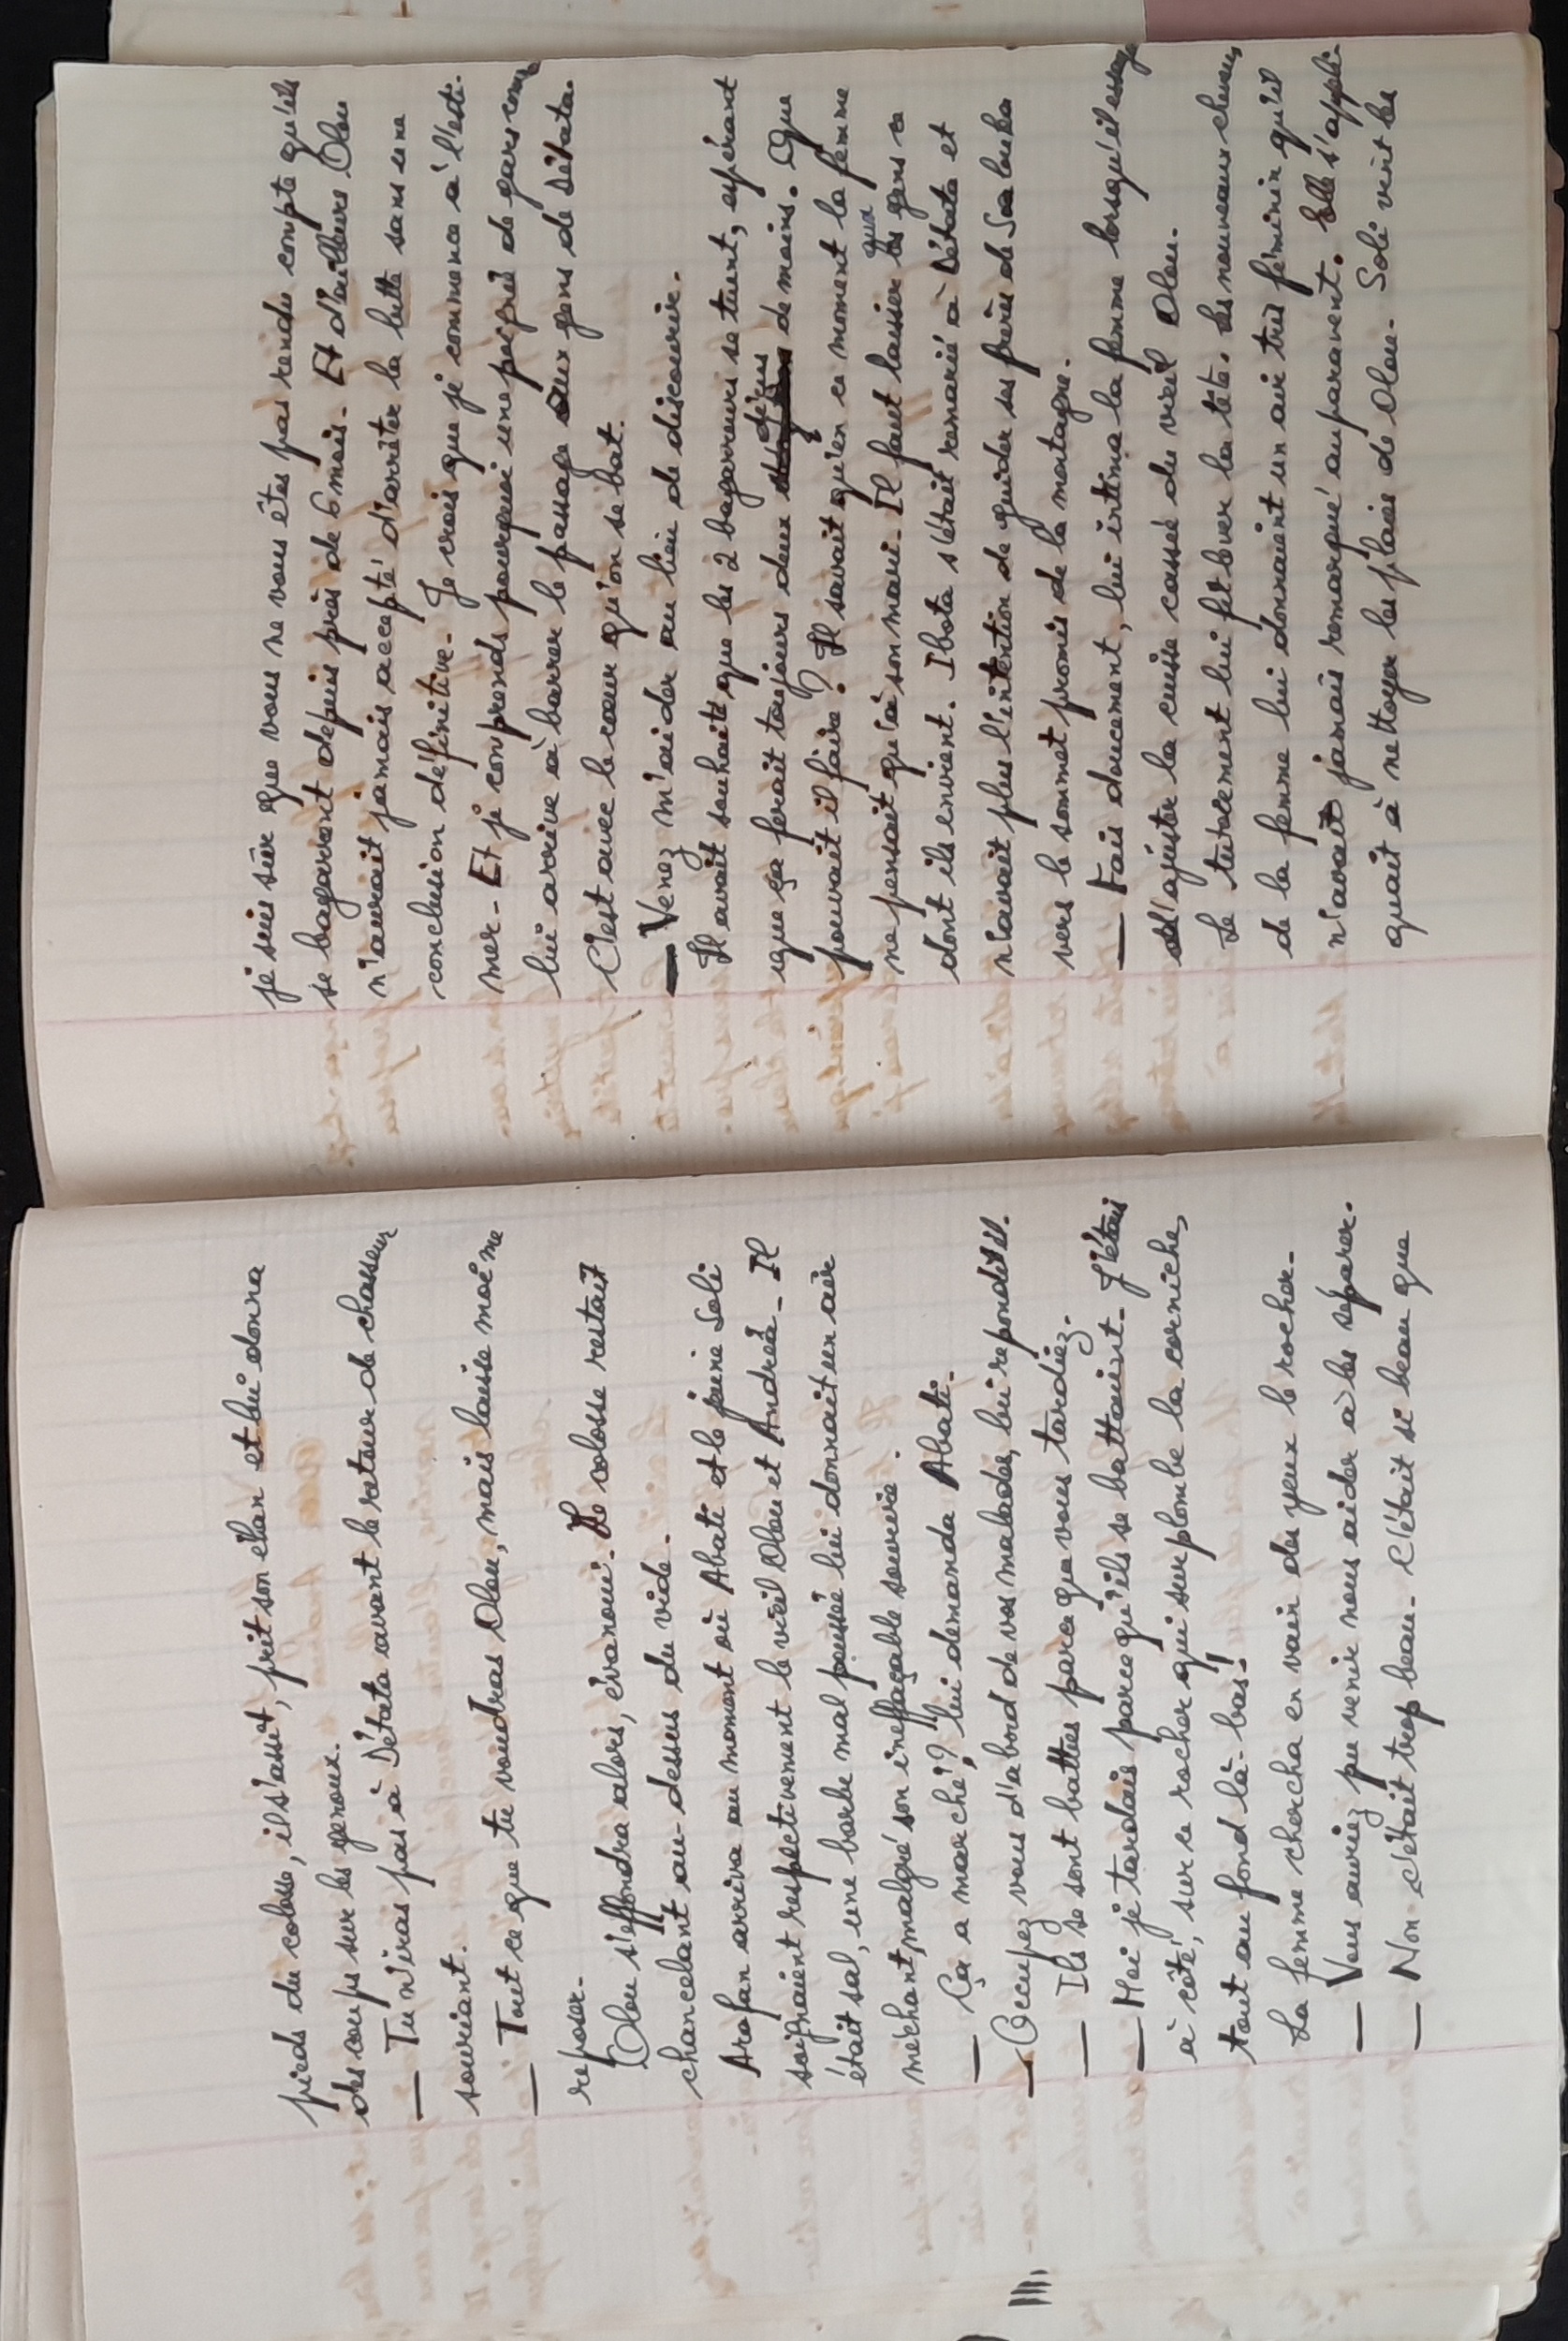 pieds du colosse, il s'assit, prit son élan et lui donna
des coups sur les genoux.
— Tu n'iras pas à Détata avant le retour de chasseur
souriant.
— Tout ce que tu voudras Olou, mais laisse moi me
reposer.
Olou s'effondra alors, évanoui. Le colosse restait
chancelant au-dessus du vide.
Arafan arriva au moment où Abati et le jeune Soli
soignaient respectivement le vieil Olou et Andréa. Il
était sal, une barbe mal poussée lui donnait un air
méchant, malgré son ineffaçable sourire.
— Ça a marché ? lui demanda Abati.
— Occupez vous d'abord de vos malades, lui repondit il.
— Ils se sont battus parce que vous tardiez.
— Moi je tardais parce qu'ils se battaient. J'étais
à côté, sur ce rocher qui surplombe la corniche,
tout au fond là-bas!
La femme chercha en vain des yeux le rocher.
— Vous auriez pu venir nous aider à les séparer.
— Non c'était trop beau. C'était si beau que
je suis sûr que vous ne vous êtes pas rendu compte qu'ils
se bagarrent depuis près de 6 mois. Et d'ailleurs Olou
n'aurait jamais accepté d'arrêter la lutte sans une
conclusion définitive. Je crois que je commence à l'esti-
mer. Et je comprends pourquoi une poignée de gars comme
lui arrive à barrer le passage aux gens de Détata.
C'est avec le cœur qu'on se bat.
— Venez m'aider au lieu de discourir.
Il avait souhaité que les 2 bagarreurs se tuent, espérant
que ça ferait toujours deux déçus de moins. Que
pouvait il faire ? Il savait qu'en ce moment la femme
ne pensait qu'à son mari. Il faut laisser aux gens ce
dont ils envient. Ibota s'était remarié à Détata et
n'avait plus l'intention de guider ses frères de Saalouba
vers le sommet promis de la montagne.
— Fais doucement, lui intima la femme lorsqu'il essaya
d'ajuster la cuisse cassée du vieil Olou.
Le tutoiement lui fit lever la tête. Les nouveaux cheveux
de la femme lui donnaient un air très féminin qu'il
n'avait jamais remarqué auparavent. Elle s'appli-
quait à nettoyer les plaies de Olou. Soli vint les